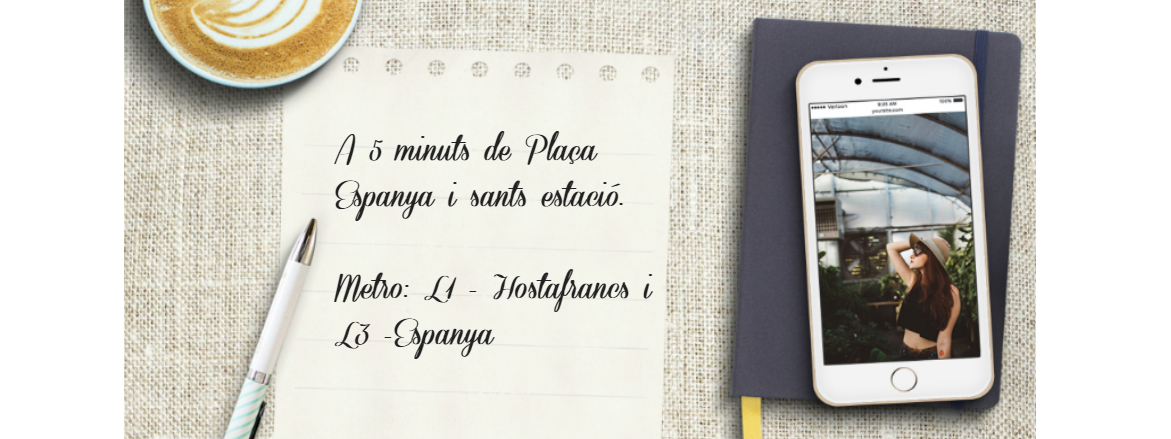 A 5 minuts de Plaça
Espanya i sants estació.
Metro: L1 - Hostafrancs i
L3 -Espanya
Verizon 9:05 AM 100%
yoursite.com